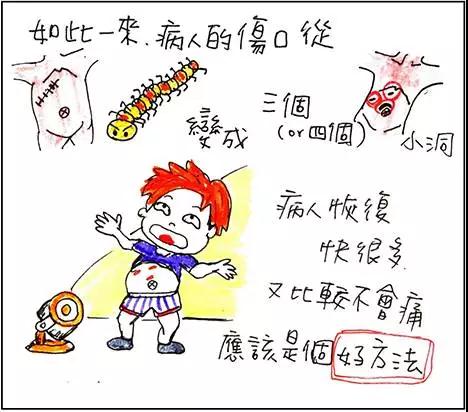 如此一來,病人的傷口從
變成
三個
(or四個)
小洞
病人恢復
快很多
又比較不會痛
應該是個好方法